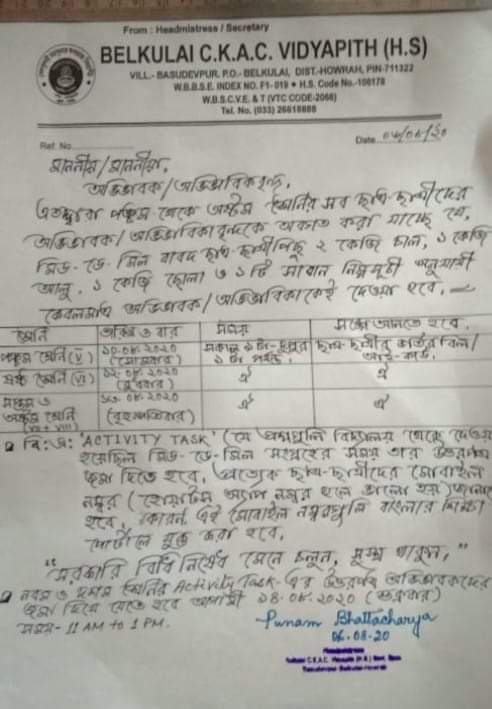 From : Headmistress / Secretary
BELKULAI C.K.A.C. VIDYAPITH (H.S)
VILL.- BASUDEVPUR, P.O.- BELKULAI, DIST.-HOWRAH, PIN-711322
W.B.B.S.E. INDEX NO. F1-019 • H.S. Code No.-106178
W.B.S.C.V.E. & T (VTC CODE-2066)
Tel. No. (033) 26618888
Ref. No. Date 06/08/20
মাননীয়/মাননীয়া,
অভিভাবক/অভিভাবিকাবৃন্দ,
এতদ্বারা পঞ্চম থেকে অষ্টম শ্রেণির সব ছাত্র-ছাত্রীদের
অভিভাবক/অভিভাবিকাবৃন্দকে অবগত করা যাচ্ছে যে,
মিড-ডে-মিল বাবদ ছাত্র-ছাত্রীপিছু ২ কেজি চাল, ১ কেজি
আলু, ১ কেজি ছোলা ও ১টি সাবান নিম্নসূচী অনুযায়ী
কেবলমাত্র অভিভাবক/অভিভাবিকাকেই দেওয়া হবে।
শ্রেণি তারিখ ও বার সময় সঙ্গে আনতে হবে।
পঞ্চম শ্রেণি (V) ১০.০৮.২০২০ (সোমবার) সকাল ১১টা-দুপুর ১টা পর্যন্ত। ছাত্র-ছাত্রীর ভর্তির বিল/আই-কার্ড।
ষষ্ঠ শ্রেণি (VI) ১২.০৮.২০২০ (বুধবার) ঐ ঐ
সপ্তম ও অষ্টম শ্রেণি (VII + VIII) ১৩.০৮.২০২০ (বৃহস্পতিবার) ঐ ঐ
বি:দ্র: 'ACTIVITY TASK' (যে প্রশ্নগুলি বিদ্যালয় থেকে দেওয়া
হয়েছিল মিড-ডে-মিল সংগ্রহের সময় তার উত্তরপত্র
জমা দিতে হবে, প্রত্যেক ছাত্র-ছাত্রীদের মোবাইল
নম্বর (হোয়াটস অ্যাপ নম্বর হলে ভালো হয়) জানাতে
হবে, কারণ এই মোবাইল নম্বরগুলি বাংলার শিক্ষা
পোর্টালে যুক্ত করা হবে।
"সরকারি বিধি নিষেধ মেনে চলুন, সুস্থ থাকুন,"
নবম ও দশম শ্রেণির Activity Task এর উত্তরপত্র অভিভাবকদের
জমা দিয়ে যেতে হবে আগামী ১৪.০৮.২০২০ (শুক্রবার)
সময়- 11 AM to 1 PM.
Punam Bhattacharya
06-08-20
Headmistress